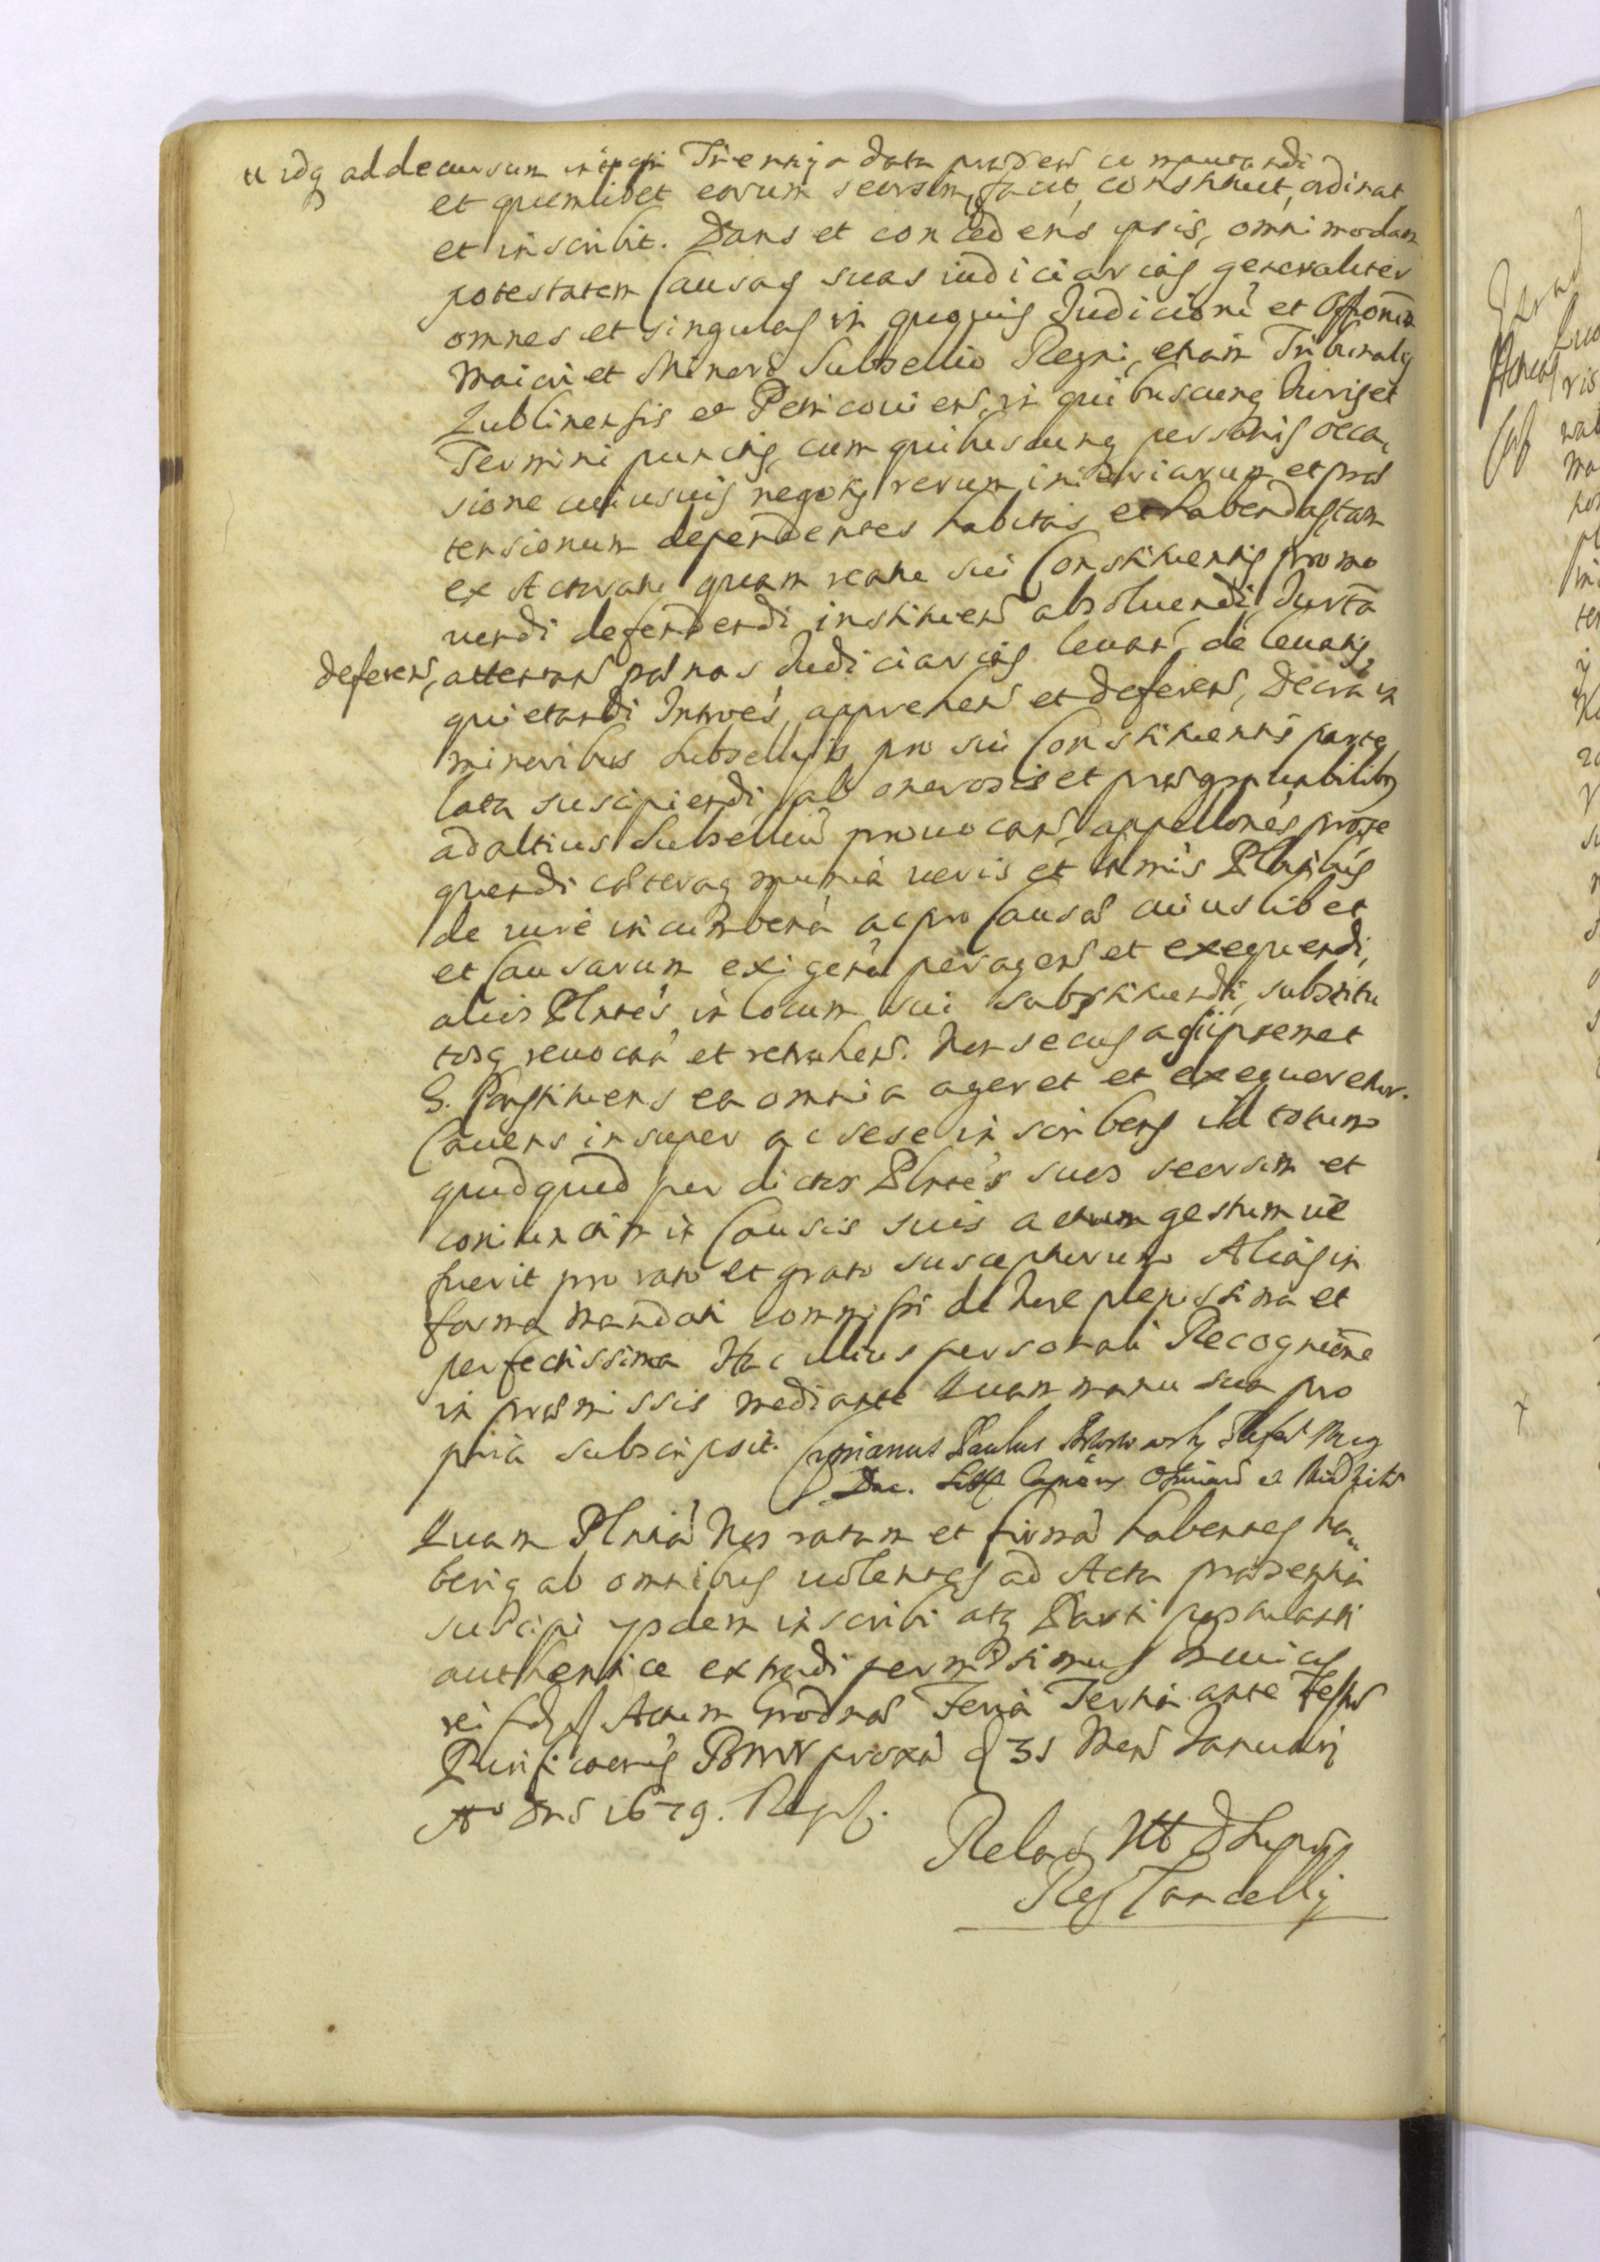 idq ad decursum Triennij a data
et quemlibet eorum seorsim, facit, constituit, ordinat
et inscribit. Dans et concedens ipsis, omnimodam
potestatem Causas suas iudiciarias generaliter
omnes et singulas in quovis Judicio et
Maiori et Minori Subsellio Regni, etiam Tribunalis
Lublinensis et Petricovien in quibuscunq Juris et
Termini punctis, cum quibuscunq personis occa,
sione cuiusvis negotij rerum iniuriarum et præ
tensionum dependentes habitas et habendas, tam
ex Actoratu quam reatu sui Constituentis promo
vendi defendendi instituen absoluendi, Juxta
deferen, attentan pænas Judiciarias levan, de levatis
quietandi Introes, apprehen et deferen, Decreta in
minoribus Subsellijs pro sui Constituentis parte
lata suscipiendi, ab onerosis et prægravabilibus
ad altius Subselliu provocan, appellones prose
quendi cæteraq munia veris et Plenibus
de iure incumben ac pro Causæ cuiuslibet
et Causarum exigen peragen et exequendi,
alios Plntes in locum sui substituendi, substitu
tosq revocan et retrahen. Non secus ac si ipsemet
G. Constituens ea omnia ageret et exequeretur.
Cavens insuper ac sese inscribens id totum
quodquod per dictos Plntes suos seorsim et
coniunctim in Causis suis actum gestumve
fuerit pro rato et grato suscepturum Alias in
forma Mandati commissi de Jure plenissima et
perfectissima Hac illius personali Recognitione
in præmissis mediante Quam manu sua pro
pria subscripsit. Cyprianus Paulus
Duc. Litt
Quam Plntia Nos ratam et firma habentes ha,
beriq ab omnibus volentes ad Acta præsentia
suscipi ijsdem inscribi atq Parti postulanti
authentice extradi permisimus In cuius
rei fid Actum Grodnæ Feria Tertia ante Festu
Purificaonis BMV proxa d 31 Mens Januarij
Ao Dni 1679.
Cancellij